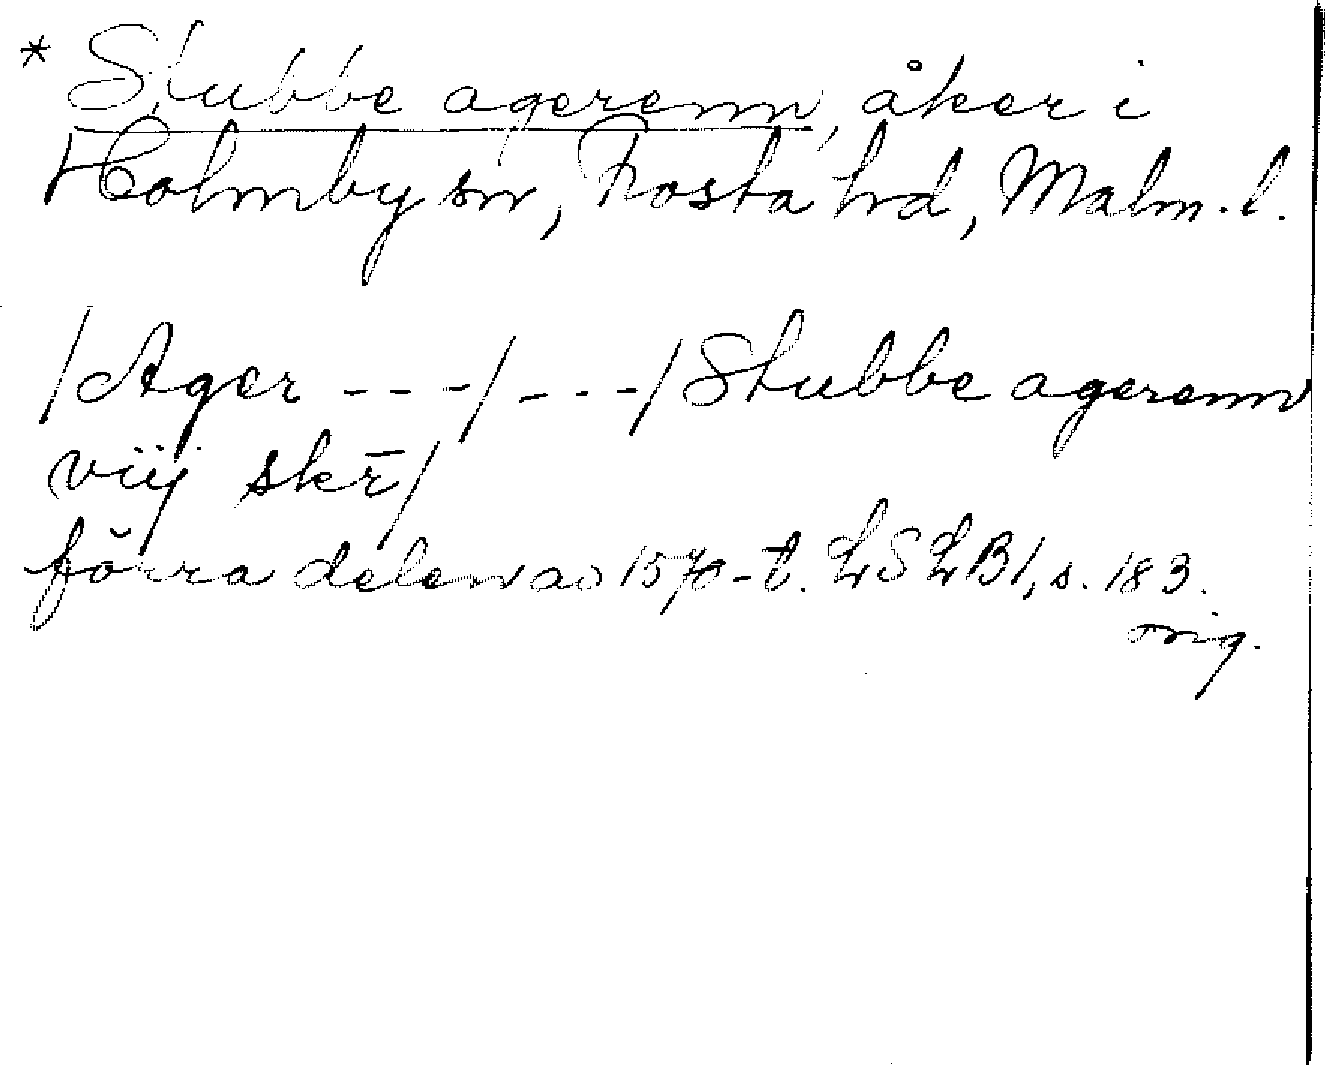 * Stubbe agerenn, åker i
Holmby sn, Frosta hd, Malm. l.
/Ager - - -/ - - -/ Stubbe agerenn
viij skr̄/
förra delen av 1570-t. LSLB1, s. 183.
orig.